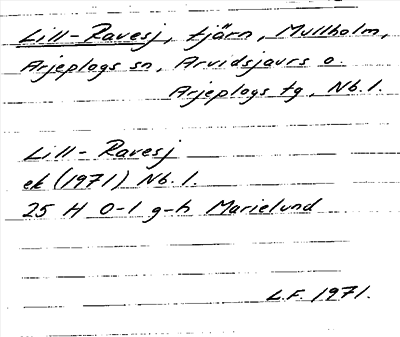 Lill-Ravesj, tjärn, Mullholm,
Arjeplogs sn, Arvidsjaurs o.
Arjeplogs tg, Nb. l.
Lill-Ravesj
ek (1971) Nb. l.
25 H 0-1 g-h Marielund
L.F. 1971.